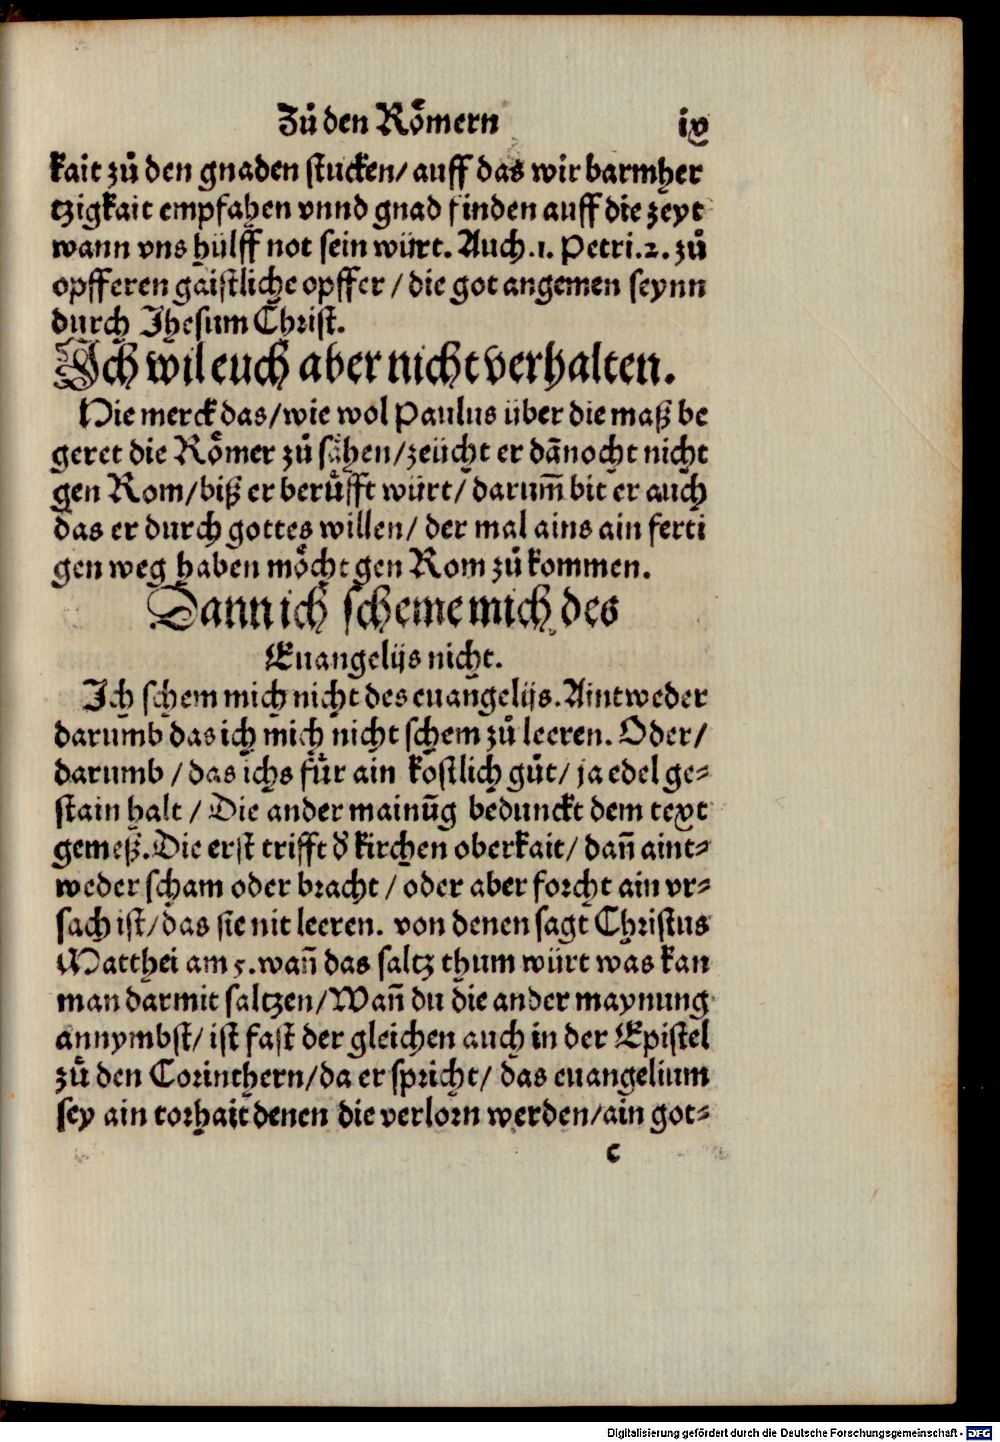 Zů den Roͤmern ix
kait zů den gnaden stucken/ auff das wir barmher
tzigkait empfahen vnnd gnad finden auff die zeyt
wann vns hülff not sein würt. Auch .1. Petri.2. zů
opfferen gaistliche opffer / die got angemen seynn
durch Jhesum Christ.
Ich wil euch aber nicht verhalten.
Hie merck das/wie wol Paulus über die maß be
geret die Roͤmer zů saͤhen/zeücht er dañocht nicht
gen Rom/biß er beruͤfft würt/ darum̃ bit er auch
das er durch gottes willen/ der mal ains ain ferti
gen weg haben moͤcht gen Rom zů kommen.
Dann ich scheme mich des
Euangelijs nicht.
Ich schem mich nicht des euangelijs. Aintweder
darumb das ich mich nicht schem zů leeren. Oder/
darumb / das ichs fuͤr ain koͤstlich gůt/ ja edel ge-
stain halt / Die ander mainũg bedunckt dem text
gemeß. Die erst trifft d̓ kirchen oberkait/ dañ aint-
weder scham oder bracht / oder aber forcht ain vr-
sach ist/das sie nit leeren. von denen sagt Christus
Matthei am 5. wañ das saltz thum würt was kan
man darmit saltzen/Wañ du die ander maynung
annymbst/ ist fast der gleichen auch in der Epistel
zů den Corinthern/da er spricht/ das euangelium
sey ain torhait denen die verlorn werden/ain got-
c
Digitalisierung gefördert durch die Deutsche Forschungsgemeinschaft - DFG